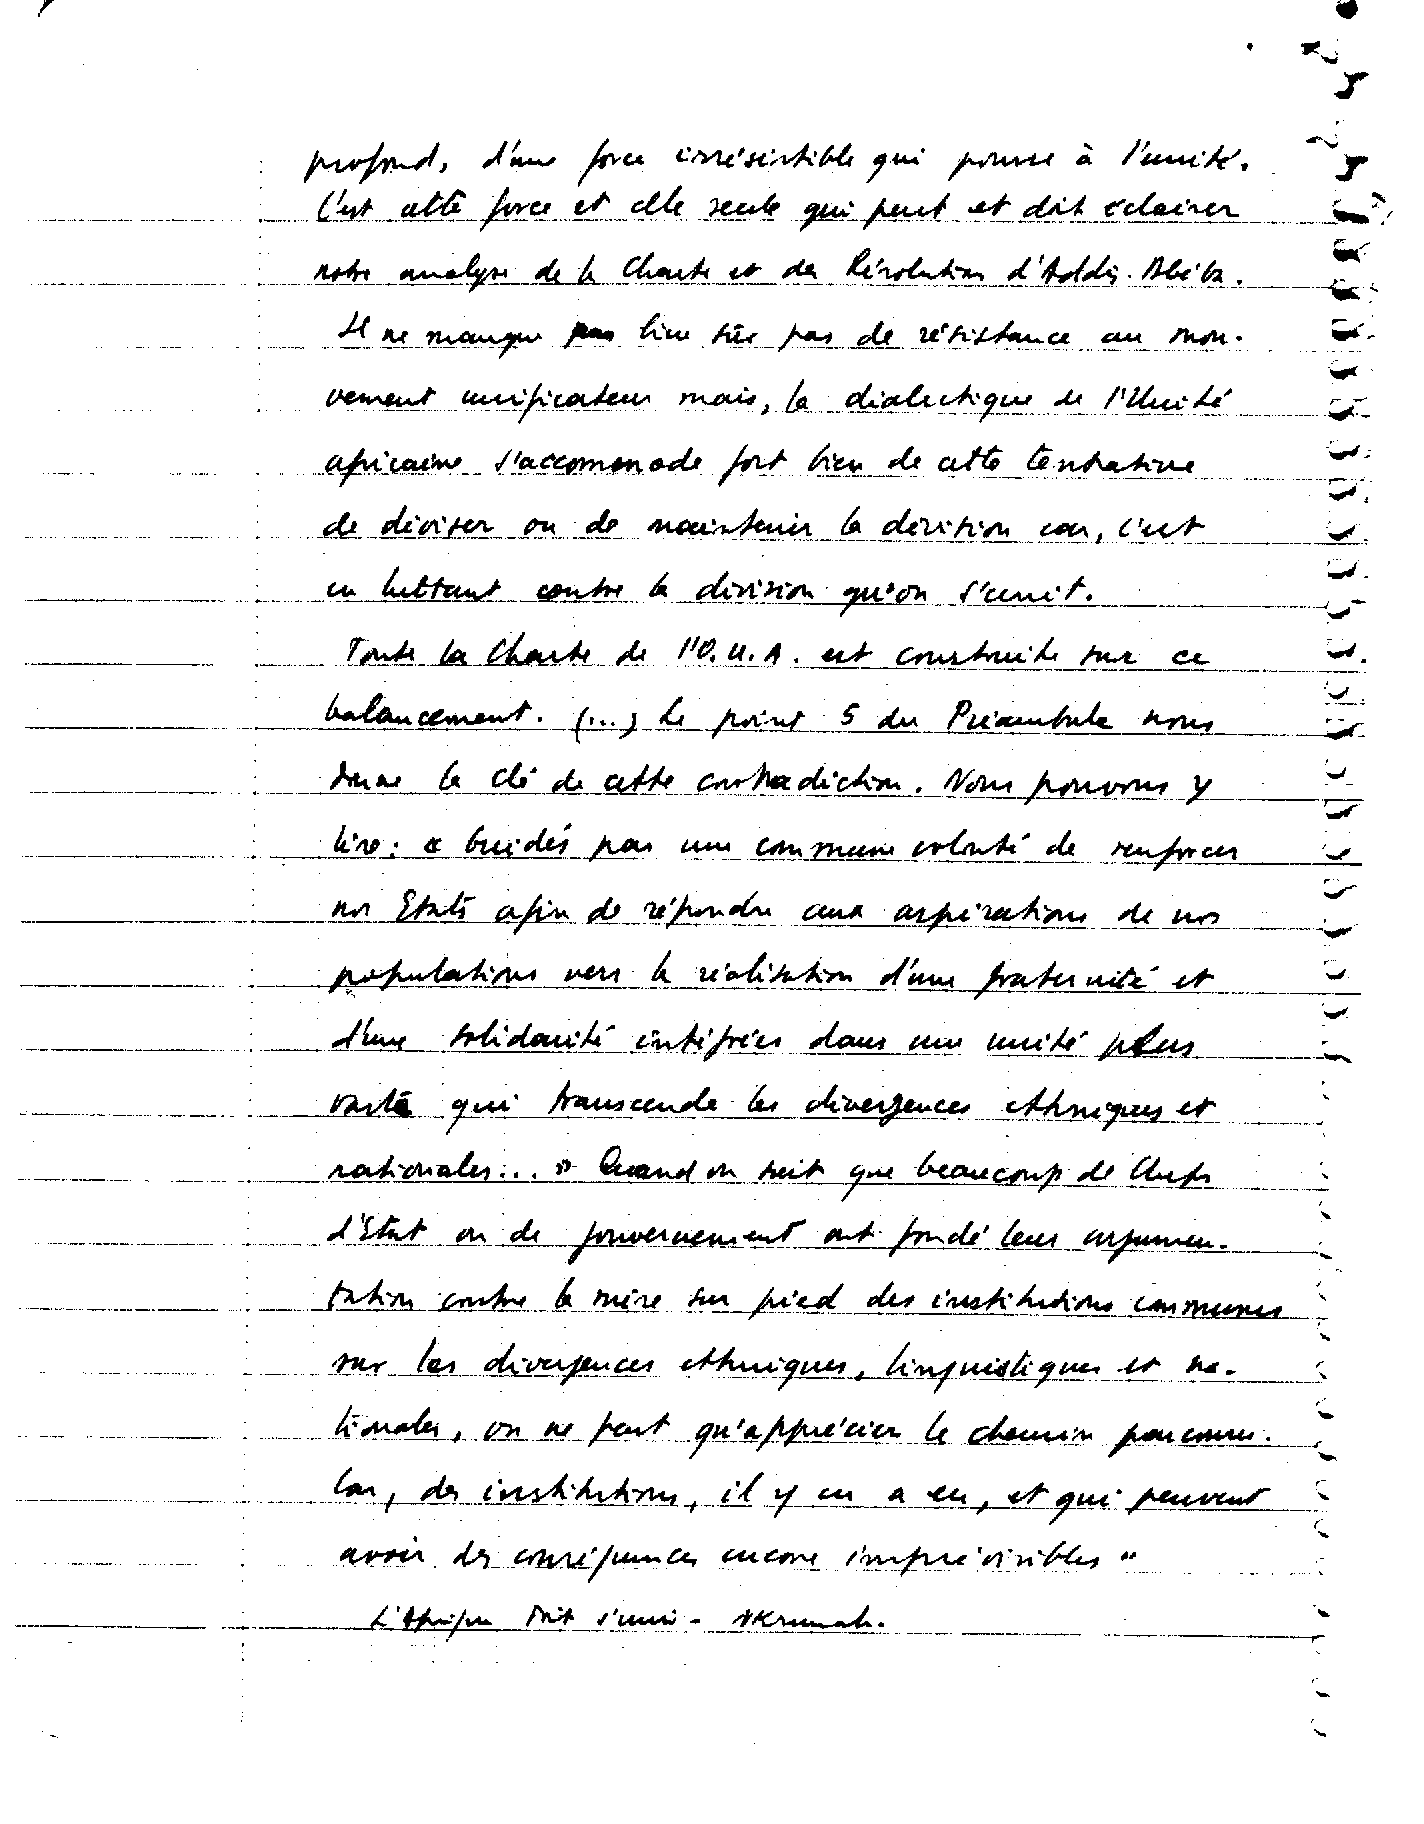 profond, d'une force irrésistible qui pousse à l'unité.
C'est cette force et elle seule qui peut et doit éclairer
notre analyse de la Charte et des Résolutions d'Addis-Abéba.
Il ne manque bien sûr pas de résistance au mou-
vement unificateur mais, la dialectique de l'Unité
africaine s'accommode fort bien de cette tentative
de diviser ou de maintenir la division car, c'est
en luttant contre la division qu'on s'unit.
Toute la Charte de l'O.U.A. est construite sur ce
balancement. (...) Le point 5 du Préambule nous
donne la clé de cette contradiction. Nous pouvons y
lire : « Guidés par une commune volonté de renforcer
nos Etats afin de répondre aux aspirations de nos
populations vers la réalisation d'une fraternité et
d'une solidarité intégrées dans une unité plus
vaste qui transcende les divergences ethniques et
nationales... » Quand on sait que beaucoup de Chefs
d'Etat ou de gouvernement ont fondé leur argumen-
tation contre la mise sur pied des institutions communes
sur les divergences ethniques, linguistiques et na-
tionales, on ne peut qu'apprécier le chemin parcouru.
Car, des institutions, il y en a eu, et qui peuvent
avoir des conséquences encore imprévisibles "
L'Afrique doit s'unir - Nkrumah.